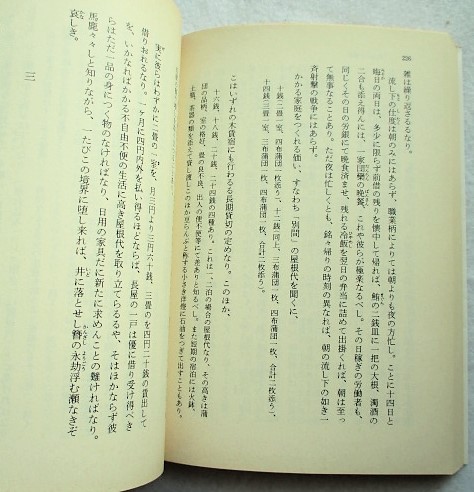 226
雑は繰り返さるるなり。
流し下の仕度は朝のみにはあらず、職業柄にては朝よりも夜の方忙し。ことに十四日と
晦日の両日は、多少に限らず前借の残りを懐中して帰れば、鮪の二銭皿に一把の大根、濁酒の
二合も添え得んには、一家団欒の晩餐、これや彼らが極楽なるべし。その日稼ぎの労働者も、
同じくその日の労銀にて晩食済ませ、残れる冷飯を翌日の弁当に詰めて出掛くれば、朝は至っ
て無事なることあり。ただ夜は忙しくとも、銘々帰りの時刻の異なれば、朝の流し下の如き一
斉射撃の戦争にはあらず。
かかる家庭をつくれる価い、すなわち「別間」の屋根代を聞くに、
十銭二畳一室、四布蒲団一枚添う、十二銭同上、三布蒲団一枚、四布蒲団一枚、合計二枚添う、
十四銭三畳一室、三布蒲団一枚、四布蒲団一枚、合計二枚添う、
こはいずれの木賃宿にても行わるる長期貸切の定めなり。このほか、
十六銭、十八銭、二十銭、二十四銭の四種あり。これは一、二泊の場合の屋根代なり、その高きは蒲
団の品柄、室の格好、畳の良不良、出入の便不便等にて差ありと知るべし。また短期の宿泊には火鉢、
土瓶、茶器の類を添えて貸し渡しこのほか豆らんぷと称する小さき洋燈に石油をつぎて出すこともあり。
実に彼らはわずかに二畳の一室を、月三円より三円六十銭、三畳のを四円二十銭の賃出して
借りおれるなり。一ケ月に四円内外を払い得るほどならば、長屋の一戸は優に借り受け得べき
を、いかなればかかる不自由不便の生活に高き屋根代を取り立てらるるや、そはほかならず彼
らはただ一品の身につく物のなければなり、日用の家具だに新たに求めんことの難ければなり。
馬鹿々々しと知りながら、一たびこの境界に堕し来れば、井に落とせし簪の永劫浮む瀬なきぞ
哀しき。
三